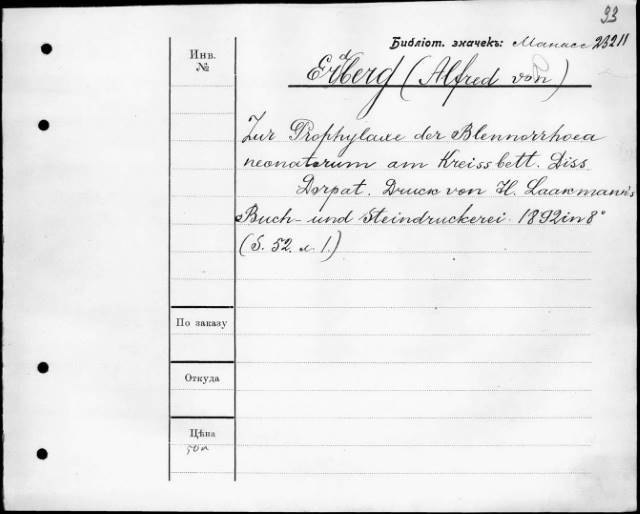 93
Библіот. значекъ: Манасс 23211
Инв.
№
Erdberg (Alfred von)
Zur Prophylaxe der Blennorrhoea
neonatorum am Kreissbett. Diss
Dorpat. Druck von H. Laakmann's
Buch- und Steindruckerei. 1892 in 8°
(S. 52. л. 1.)
По заказу
Откуда
Цѣна
50к